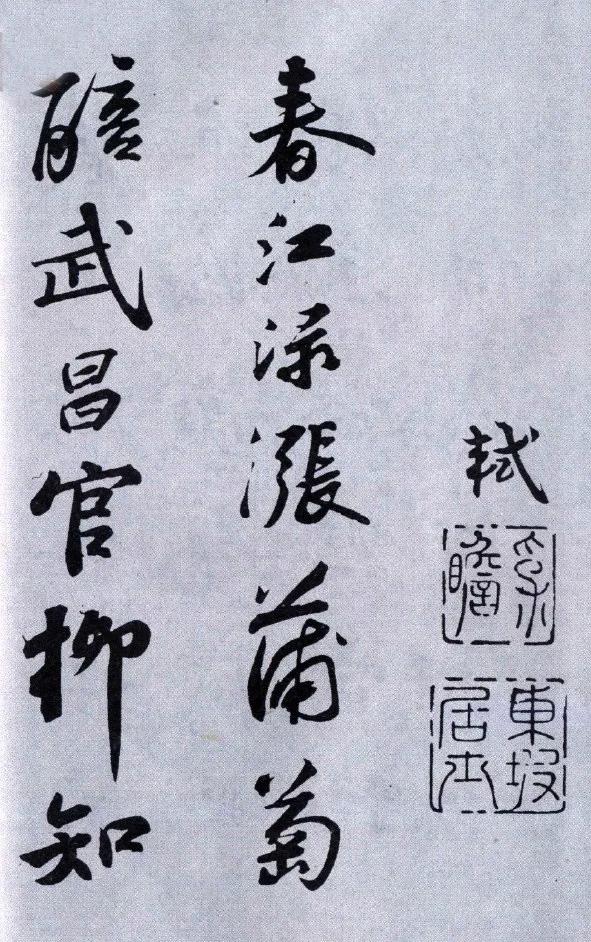 軾
子瞻
東坡居士
春江淥漲蒲萄
醅武昌官柳知